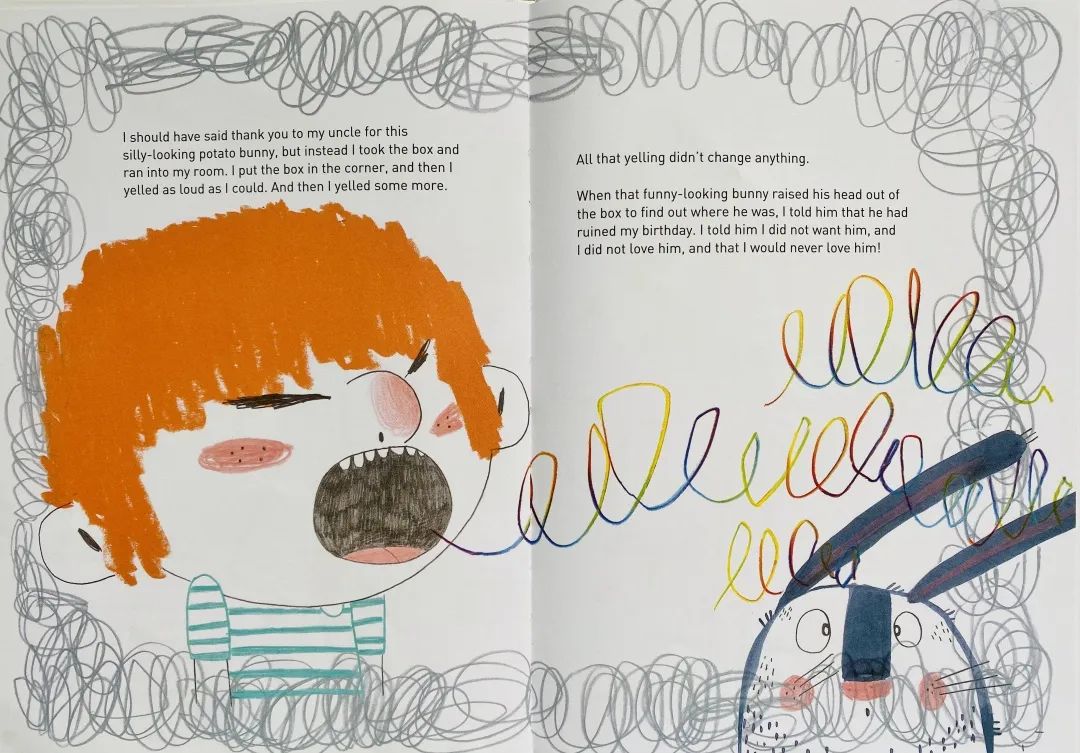 I should have said thank you to my uncle for this
silly-looking potato bunny, but instead I took the box and
ran into my room. I put the box in the corner, and then I
yelled as loud as I could. And then I yelled some more.
All that yelling didn't change anything.
When that funny-looking bunny raised his head out of
the box to find out where he was, I told him that he had
ruined my birthday. I told him I did not want him, and
I did not love him, and that I would never love him!